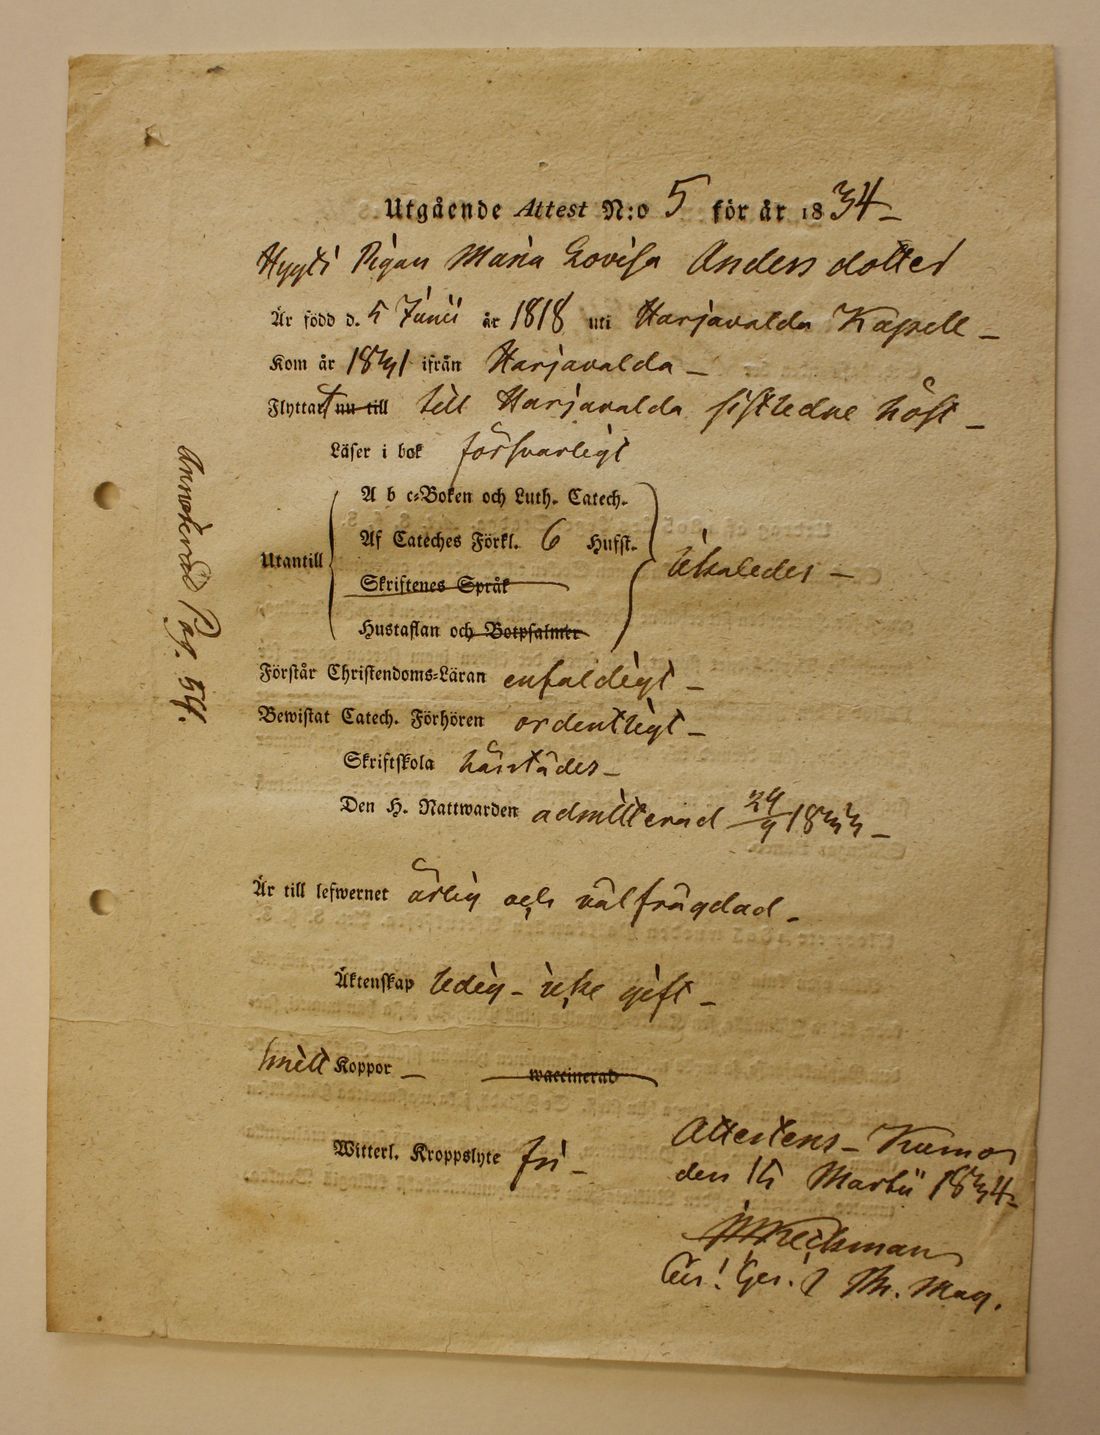 Utgående Attest N:o 5 för år 1834
Pigan Maria Lovisa Andersdotter
Är född d. 5 Junii år 1818 uti Harjavalda Kapell
Kom år 1831 ifrån Harjavalda
Flyttat nu till till Harjavalda sistledne höst
Läser i bok försvarligt
Utantill
A b c-Boken och Luth. Catech.
Af Cateches Förkl. 6 Hufst.
Skriftenes Språk
Hustaflan och Botpsalmer
likaledes
Förstår Christendoms-Läran enfaldigt
Bewistat Catech. Förhören ordentligt
Skriftskola härstädes
Den H. Nattwarden admitterad 24/9 1833
Är till lefwernet ärlig och välfrägdad
Äktenskap ledig – icke gift
Koppor waccinerad
Witterl. Kroppslyte fri
Attesteras – Kumo
den 15 Martii 1834
Th. Mag.
Annoterad Pag. 54.